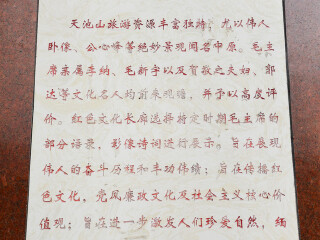 天池山旅游资源丰富独特，尤以伟人
卧像、公心峰等绝妙景观闻名中原。毛主
席亲属李纳、毛新宇以及贺敬之夫妇、郭
达等文化名人约前来观瞻，并予以高度评
价。红色文化长廊选择特定时期毛主席的
部分语录，影像诗词进行展示。旨在展现
伟人的奋斗历程和丰功伟绩；旨在传播红
色文化，党风廉政文化及社会主义核心价
值观；旨在进一步激发人们珍爱自然，缅